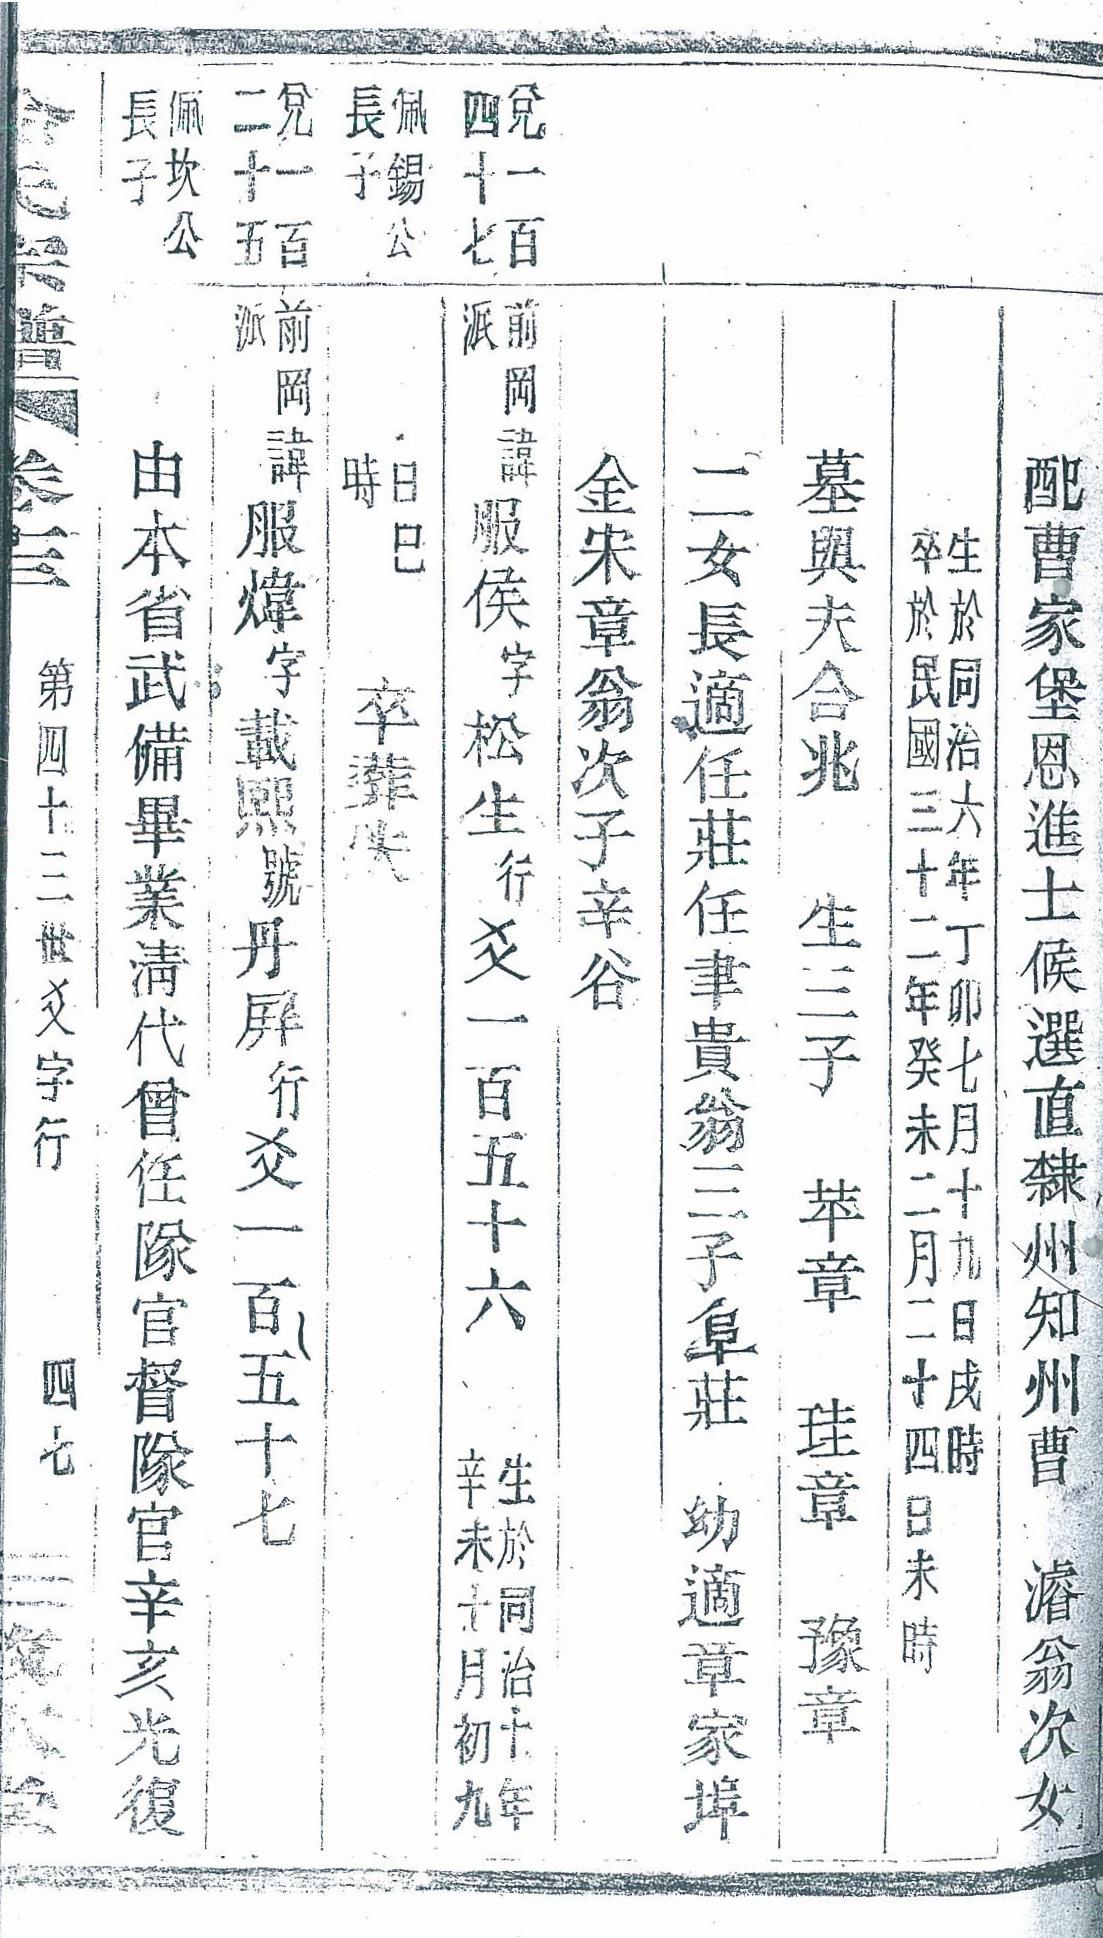 配曹家堡恩進士候選直隸州知州曹 濬翁次女
生於同治六年丁卯七月十九日戌時
卒於民國三十二年癸未二月二十四日未時
墓與夫合兆 生三子 苹章 珪章 豫章
二女長適任莊任聿貴翁三子阜莊 幼適章家埠
金宋章翁次子辛谷
兌一百
四十七
前岡
派
諱服侯字松生行爻一百五十六
生於同治十年
辛未十月初九
佩錫公
長子
日巳
時
卒葬失
兌一百
二十五
前岡
派
諱服煒字載熙號丹屏行爻一百五十七
佩坎公
長子
由本省武備畢業清代曾任隊官督隊官辛亥光復
氏宗譜
卷三
第四十三世爻字行
四七
三